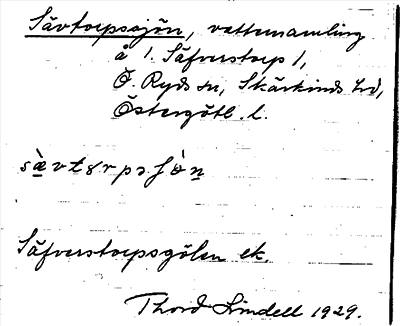 Sävtorpssjön, vattensamling
å 1. Säfverstorp 1,
Ö. Ryds sn, Skärkinds hd,
Östergötl. l.
sæ̀vtɤrpsʃøn
Säfverstorpsgölen ek.
Thord Lindell 1929.